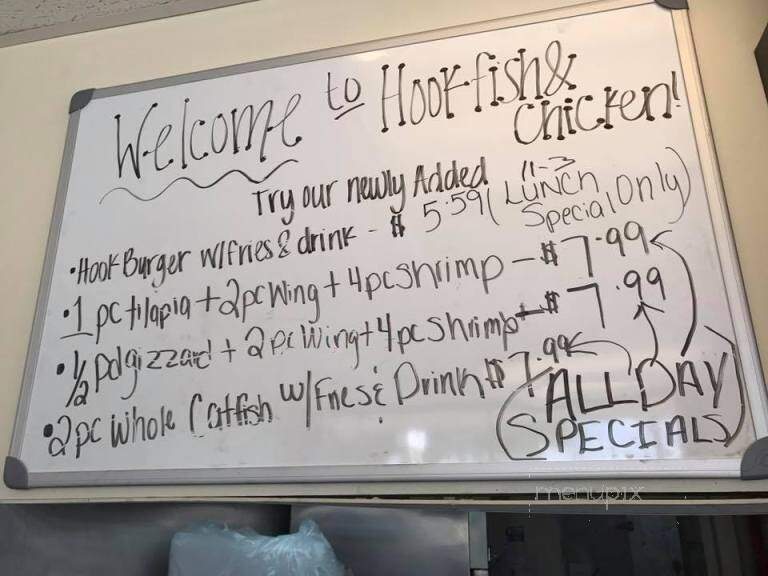 Welcome to Hook fish &
Chicken!
Try our newly Added
• Hook Burger w/fries & drink - $ 5.59 ( 11-3 LUNCH Special Only)
• 1 pc tilapia + 2pc Wing + 4pc Shrimp - $ 7.99
• 1/2 pd gizzard + 2pc Wing + 4pc Shrimp - $ 7.99
• 2pc Whole Catfish w/Fries & Drink $7.99
(ALL DAY
SPECIALS)
menupix